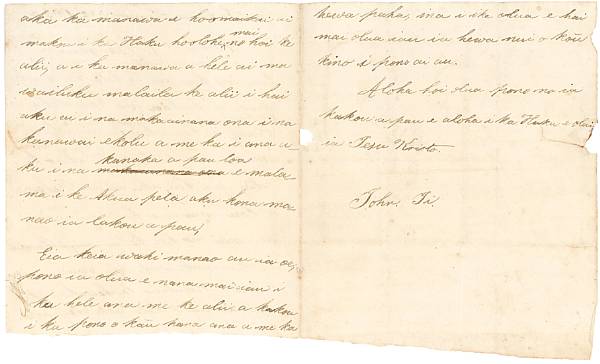 aka ka manawa i hoomaikai ai
makou i ka Haku hoolohe mai no hoi ke
alii, a i ka manawa a hele ai ma
wailuku malaila ke alii i hai
aku ai i na makaainana ona i na
kanawai ekolu a me ka i ana a
ku i na makaainana ona kanaka a pau loa e mala-
ma i ke Akua pela aku kona ma-
nao ia lakou a pau,
Eia keia wahi manao au ia oe,
pono ia olua e nana mai iau i
ka hele ana me ke alii a kakou
i ka pono o kāu hana ana a me ka
hewa paha, ina i ike olua e hai
mai olua iau ia hewa nui o kōu
kino i pono ai au.
Aloha hoi olua pono no ia
kakou a pau e aloha i ka Haku e olai
ia Jesu Kristo.
John. Ii.